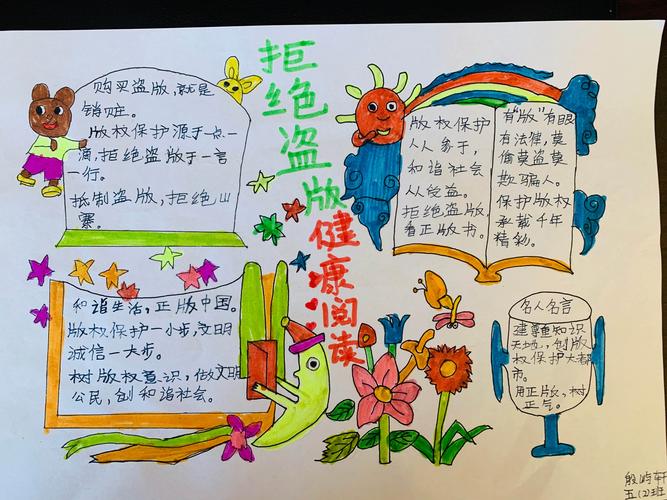 拒绝盗版
健康阅读
购买盗版,就是
销赃。
版权保护源于一点一
滴,拒绝盗版于一言
一行。
抵制盗版,拒绝山
寨。
版权保护
人人参于,
和谐社会
人人受益。
拒绝盗版,
看正版书。
有"版"有眼
有法律,莫
偷莫盗莫
欺骗人。
保护版权
承载千年
精彩。
和谐生活,正版中国。
版权保护一小步,文明
诚信一大步。
树版权意识,做文明
公民,创和谐社会。
名人名言
建知识
天地,创版
权保护大都
市。
用正版,树
正气。
殷屿轩
五(2)班